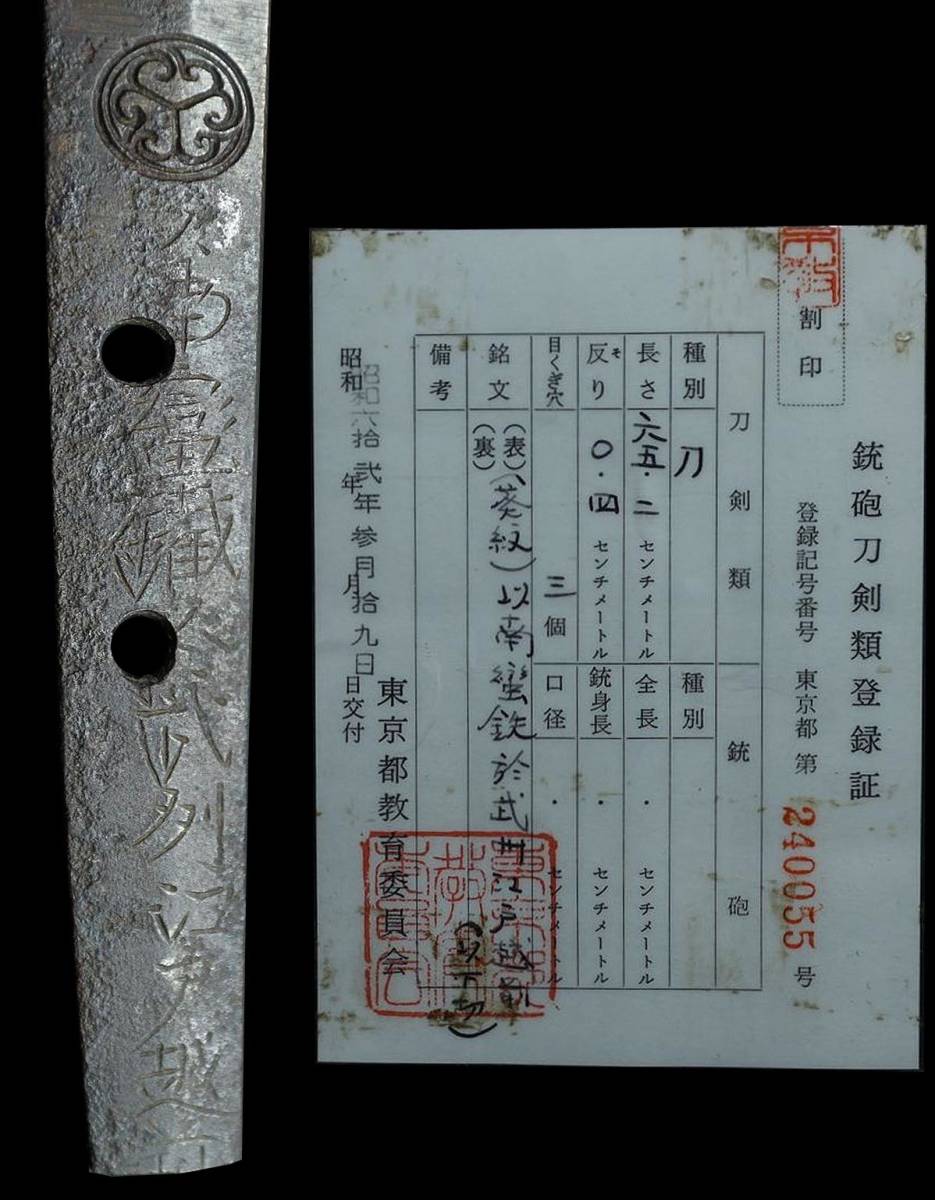 以南蛮鐵於武州江戸越前
銃砲刀剣類登録証
割印
登録記号番号 東京都 第 240055 号
刀剣類
銃砲
種別 刀
種別
長さ 六五.二 センチメートル
全長 . センチメートル
反り そ 〇.四 センチメートル
銃身長 . センチメートル
目くぎ穴 三個
口径 . センチメートル
銘文 (表)(葵紋)以南蛮鉄於武州江戸越前
(裏)
(以下切)
備考
東京都教育委員会
昭和六拾弐年参月拾九日
昭和 年 月 日交付